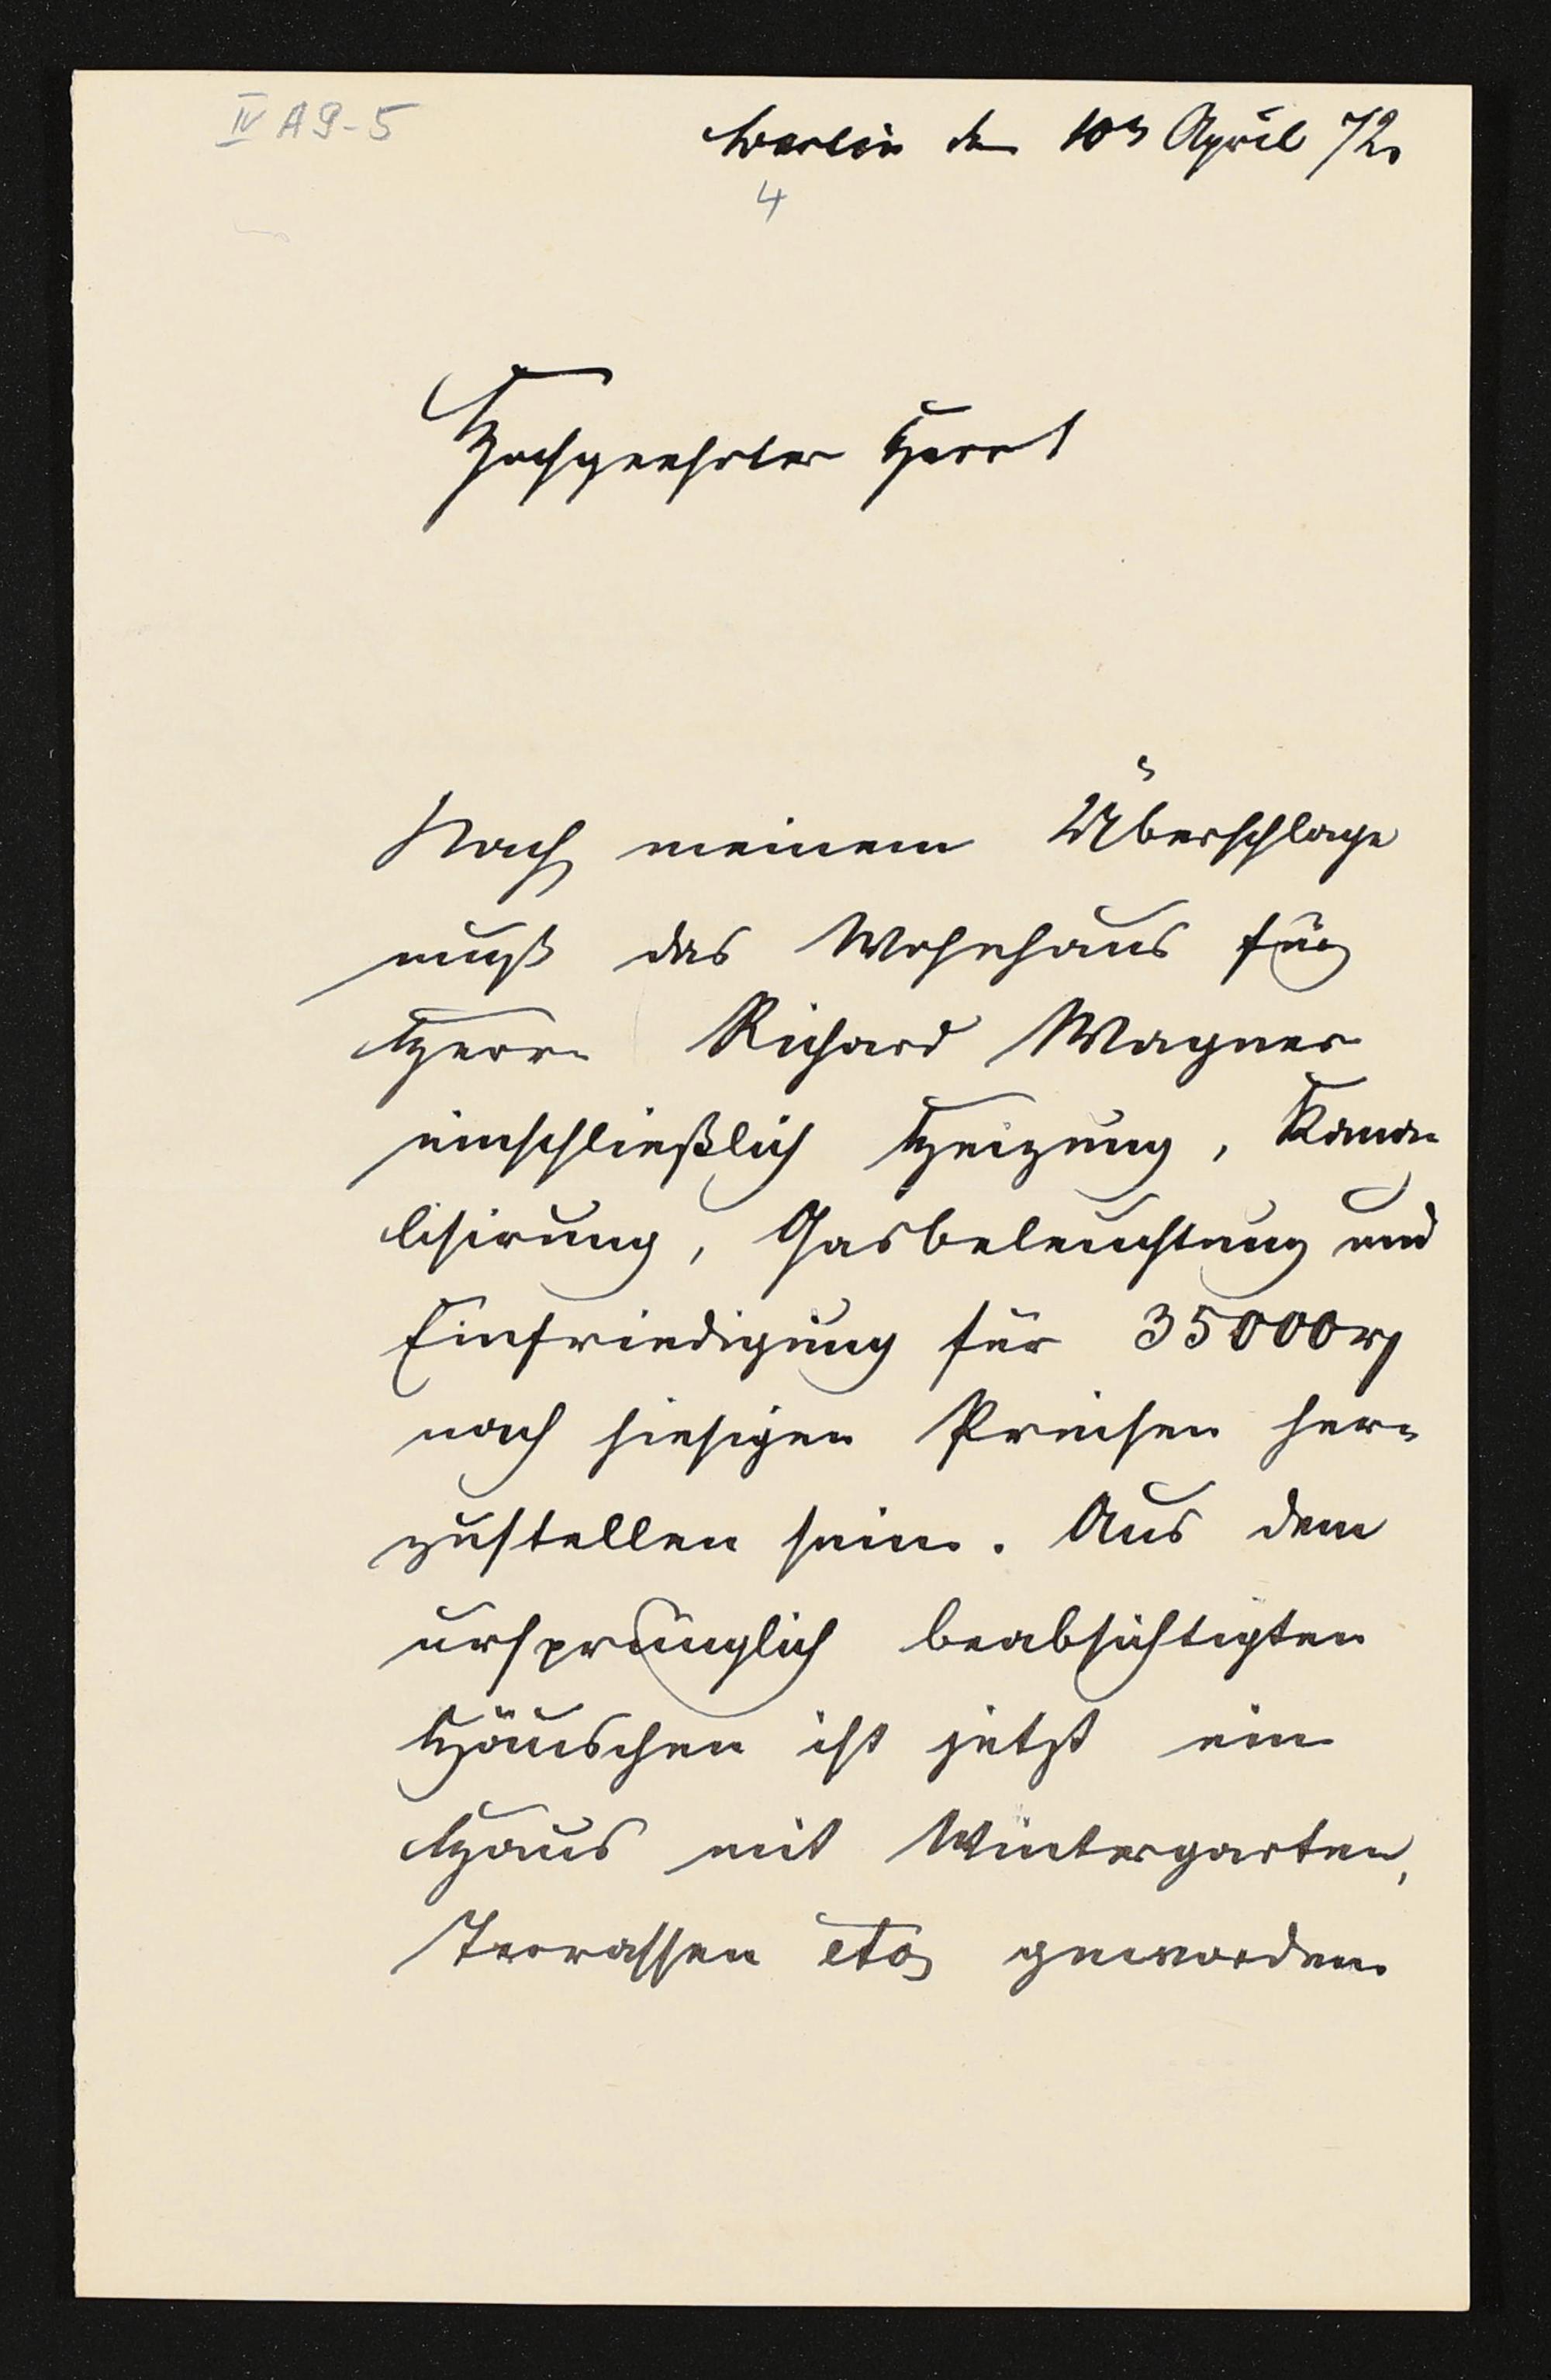 IV A 9-5
Berlin den 10ⁿ April 72.
4
Hochgeehrter Herr!
Nach meinem Überschlage
muß das Wohnhaus für
Herrn Richard Wagner
einschließlich Heizung, Kana-
lisirung, Gasbeleuchtung und
Einfriedigung für 35000 rℓ
nach hiesigen Preisen her-
zustellen sein. Aus dem
ursprünglich beabsichtigten
Häuschen ist jetzt ein
Haus mit Wintergarten,
Terrassen etc geworden.